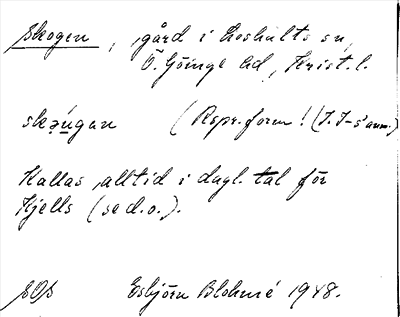 Skogen, gård i Loshults sn,
Ö. Göinge hd, Krist. l.
(Repr. form! (I. I-s anm.)
Kallas alltid i dagl. tal för
Kjells (se d.o.).
SOS Esbjörn Blohmé 1948.